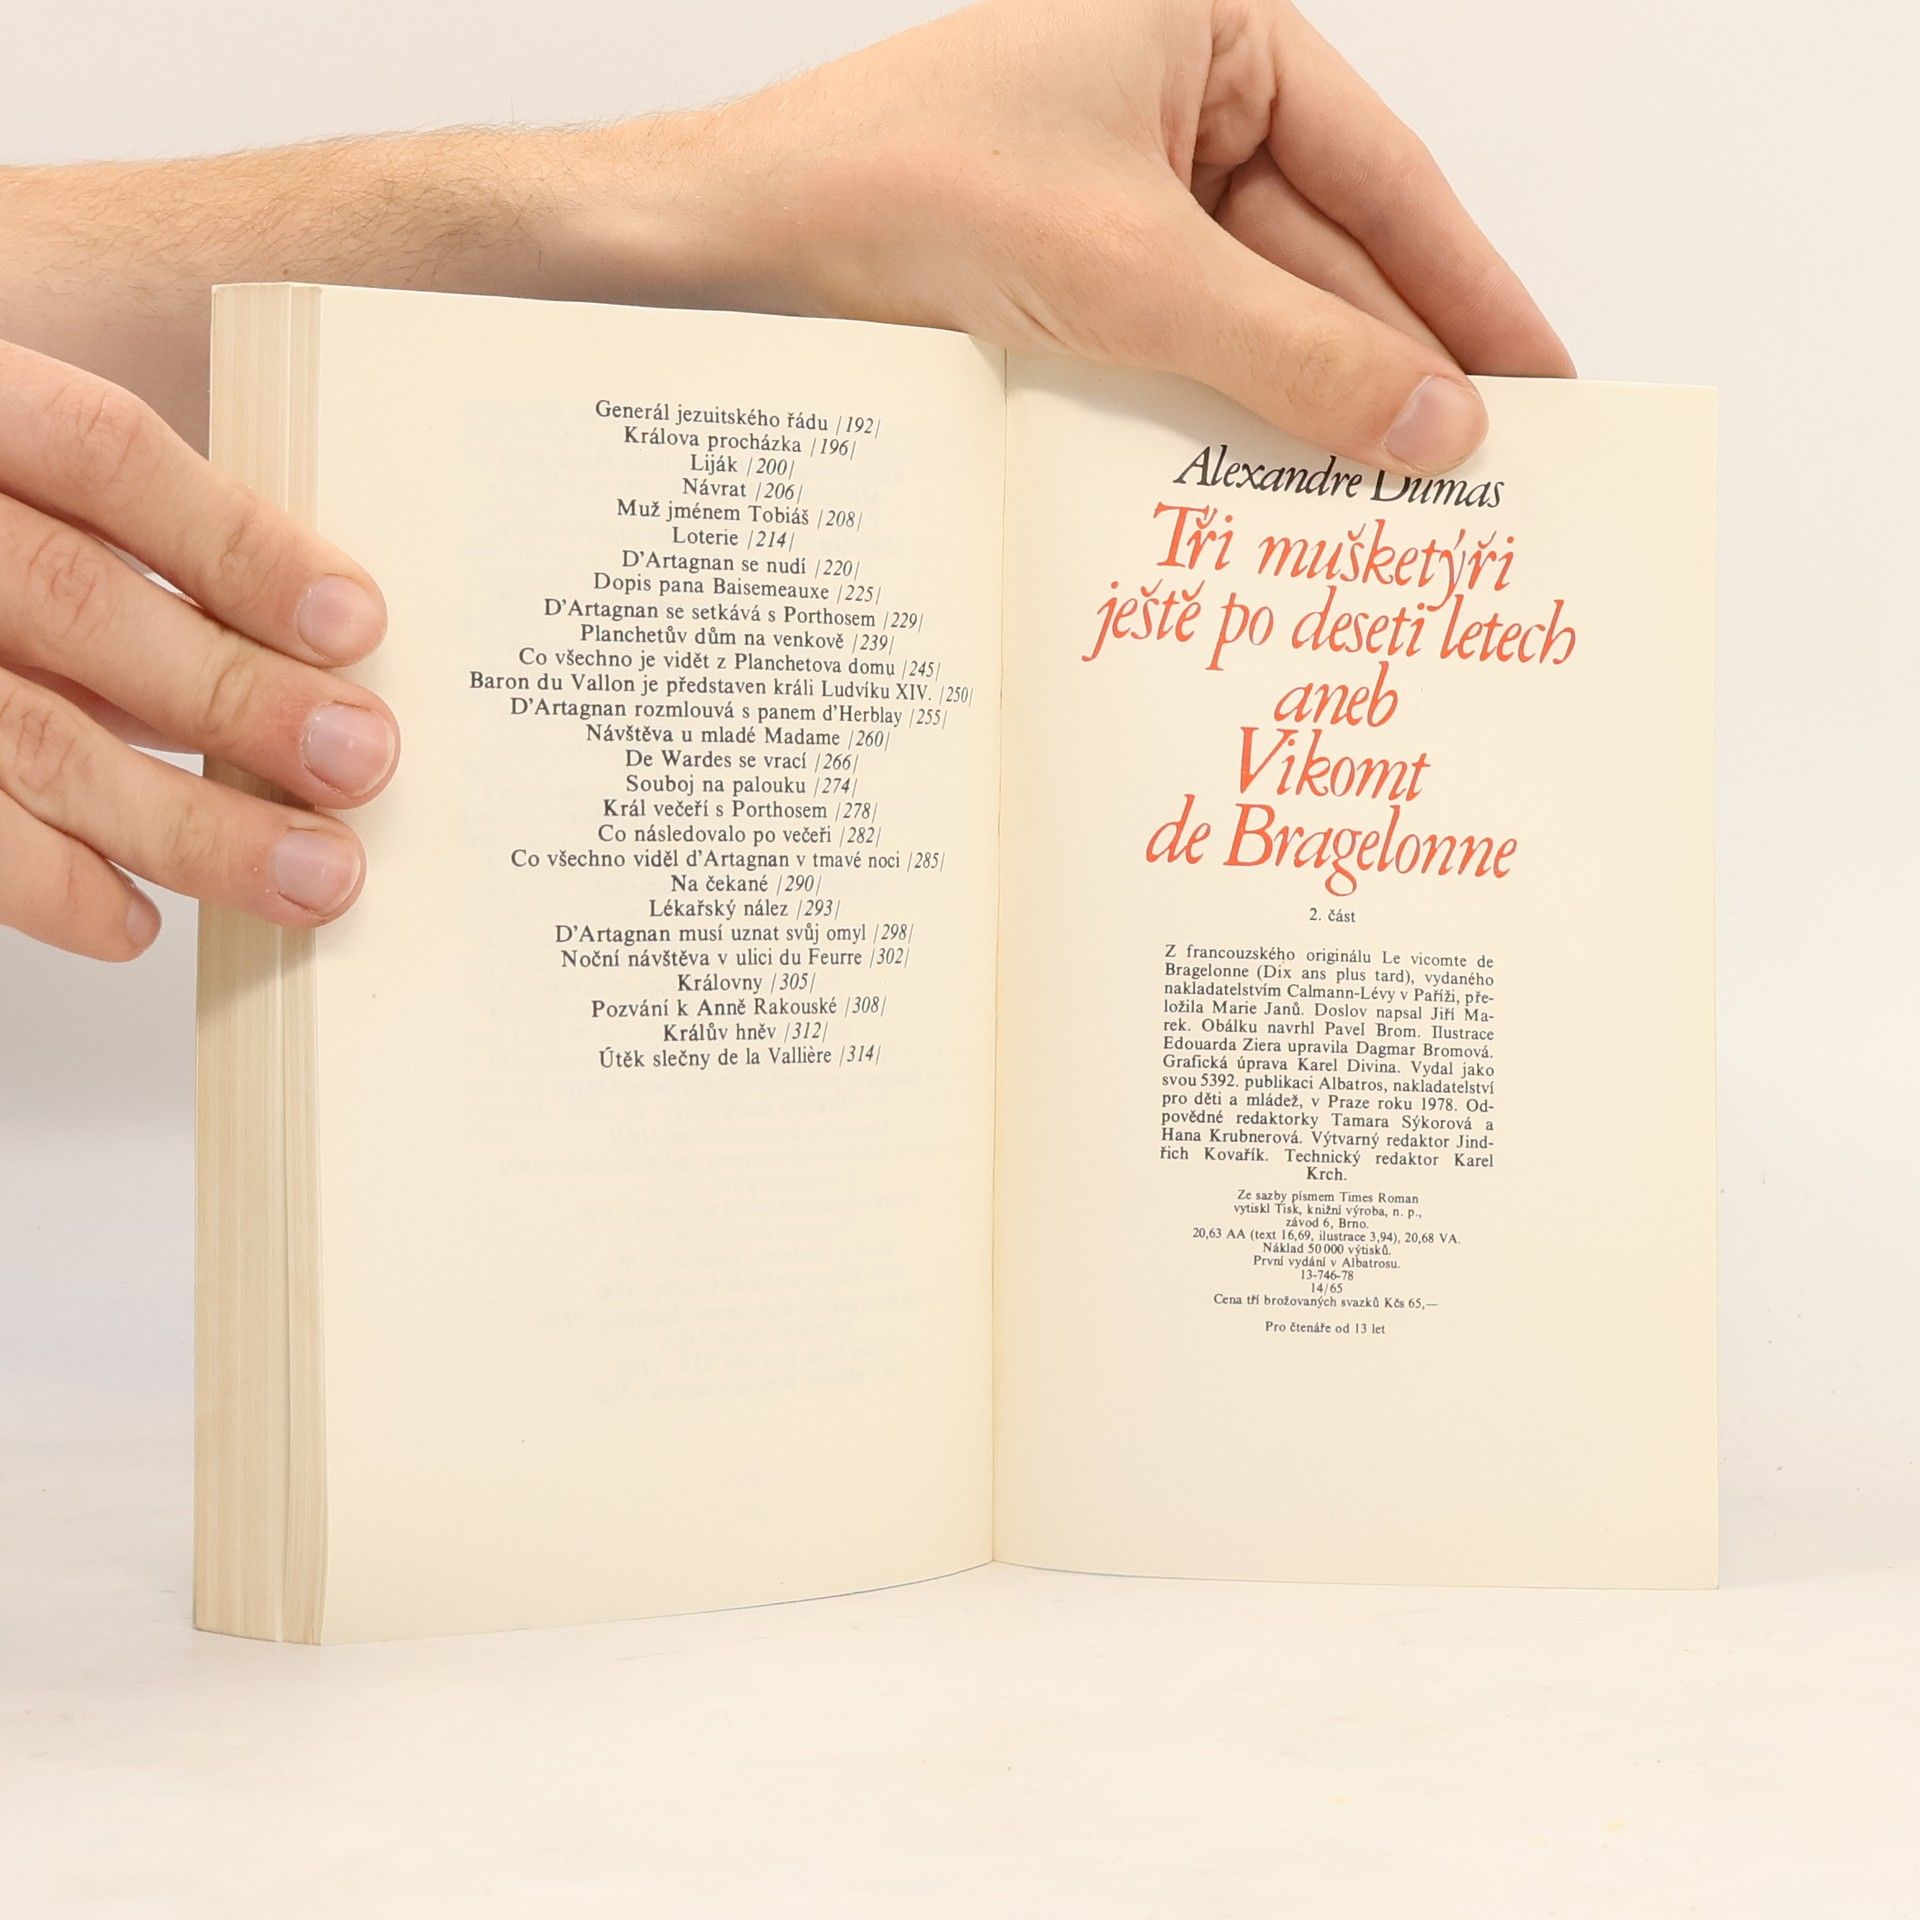 Generál jezuitského řádu /192/
Králova procházka /196/
Liják /200/
Návrat /206/
Muž jménem Tobiáš /208/
Loterie /214/
D'Artagnan se nudí /220/
Dopis pana Baisemeauxe /225/
D'Artagnan se setkává s Porthosem /229/
Planchetův dům na venkově /239/
Co všechno je vidět z Planchetova domu /245/
Baron du Vallon je představen králi Ludvíku XIV. /250/
D'Artagnan rozmlouvá s panem d'Herblay /255/
Návštěva u mladé Madame /260/
De Wardes se vrací /266/
Souboj na palouku /274/
Král večeří s Porthosem /278/
Co následovalo po večeři /282/
Co všechno viděl d'Artagnan v tmavé noci /285/
Na čekané /290/
Lékařský nález /293/
D'Artagnan musí uznat svůj omyl /298/
Noční návštěva v ulici du Feurre /302/
Královny /305/
Pozvání k Anně Rakouské /308/
Králův hněv /312/
Útěk slečny de la Vallière /314/
Alexandre Dumas
Tři mušketýři
ještě po deseti letech
aneb
Vikomt
de Bragelonne
2. část
Z francouzského originálu Le vicomte de
Bragelonne (Dix ans plus tard), vydaného
nakladatelstvím Calmann-Lévy v Paříži, pře-
ložila Marie Janů. Doslov napsal Jiří Ma-
rek. Obálku navrhl Pavel Brom. Ilustrace
Edouarda Ziera upravila Dagmar Bromová.
Grafická úprava Karel Divina. Vydal jako
svou 5392. publikaci Albatros, nakladatelství
pro děti a mládež, v Praze roku 1978. Od-
povědné redaktorky Tamara Sýkorová a
Hana Krubnerová. Výtvarný redaktor Jind-
řich Kovařík. Technický redaktor Karel
Krch.
Ze sazby písmem Times Roman
vytiskl Tisk, knižní výroba, n. p.,
závod 6, Brno.
20,63 AA (text 16,69, ilustrace 3,94), 20,68 VA.
Náklad 50 000 výtisků.
První vydání v Albatrosu.
13-746-78
14/65
Cena tří brožovaných svazků Kčs 65,—
Pro čtenáře od 13 let